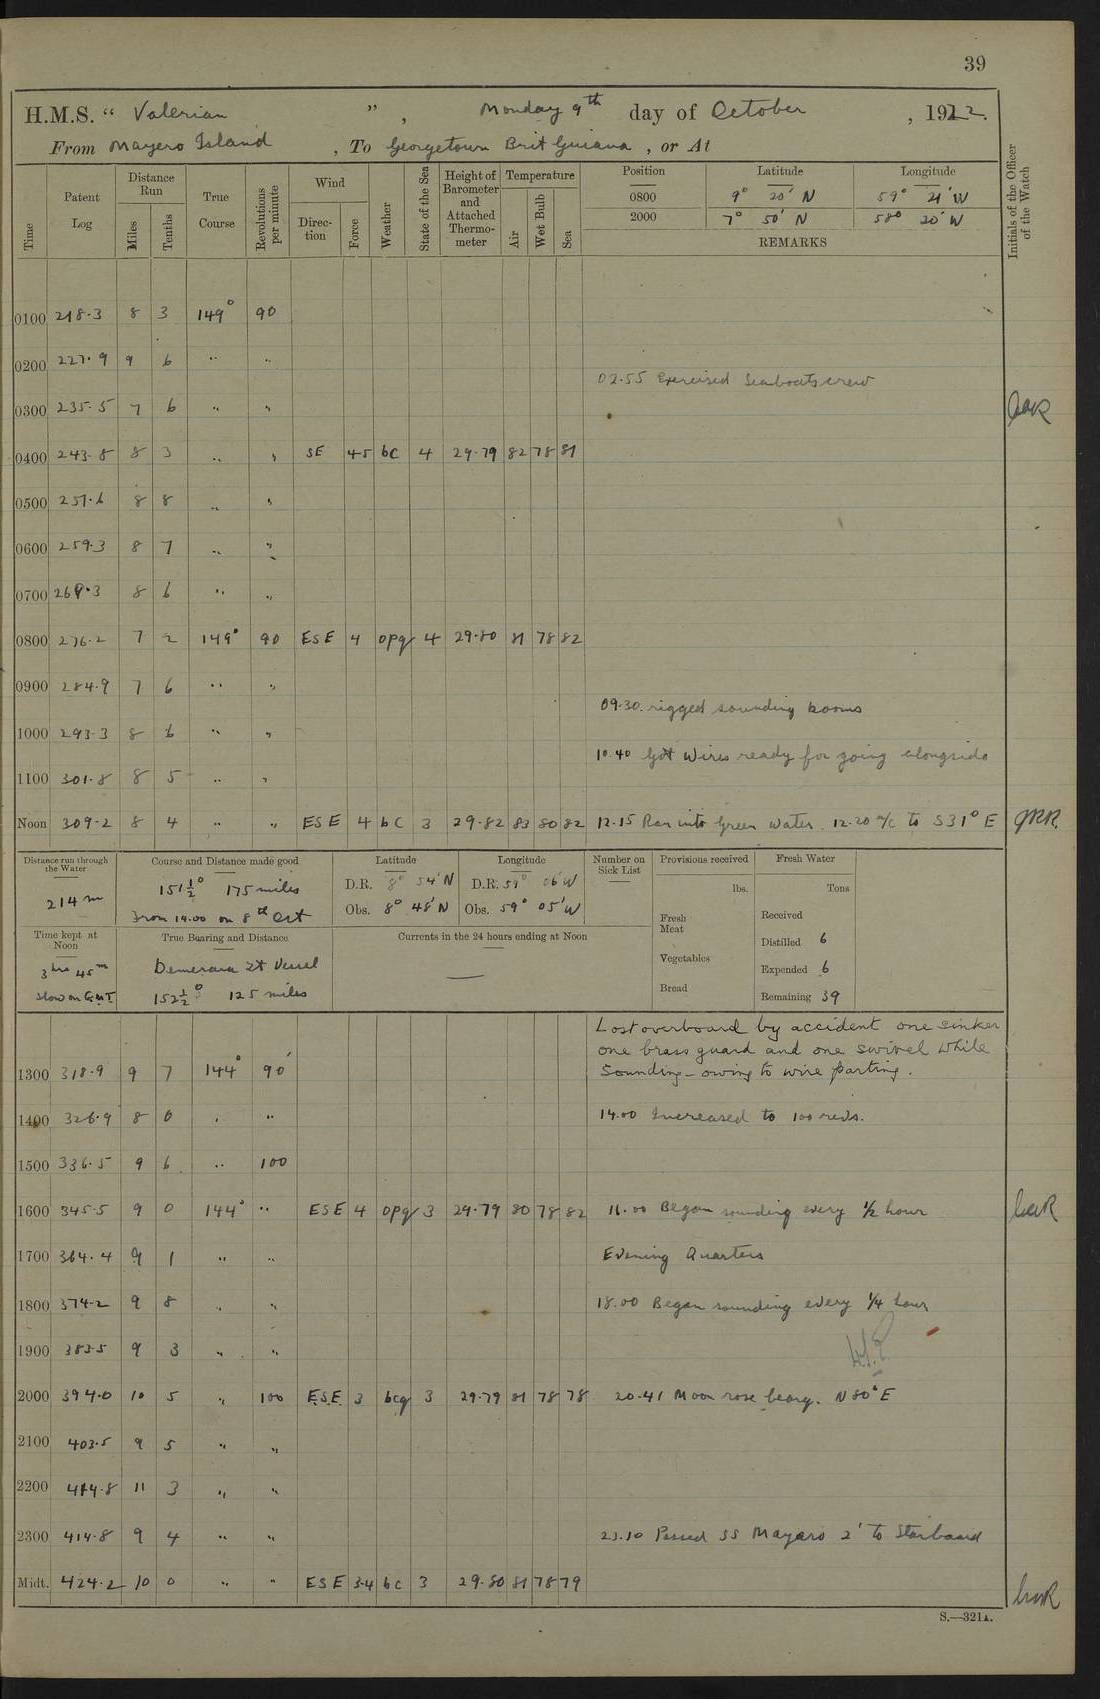 39
H.M.S. “ Valerian ” , Monday 9th day of October , 1922.
From Mayero Island , To Georgetown Brit Guiana , or At
Time
Patent Log
Distance Run
Miles
Tenths
True Course
Revolutions per minute
Wind
Direction
Force
Weather
State of the Sea
Height of Barometer and Attached Thermometer
Temperature
Air
Wet Bulb
Sea
Position Latitude Longitude
0800 9° 20' N 59° 21' W
2000 7° 50' N 58° 20' W
REMARKS
Initials of the Officer of the Watch
0100 218.3 8 3 149° 90
0200 227.9 9 6 " "
02.55 Exercised Seaboats crew
0300 235.5 7 6 " "
0400 243.8 8 3 " " SE 45 bc 4 29.79 82 78 81
0500 251.6 8 8 " "
0600 259.3 8 7 " "
0700 269.3 8 6 " "
0800 276.2 7 2 149° 90 ESE 4 opq 4 29.80 81 78 82
0900 284.9 7 6 " "
09.30. rigged sounding booms
1000 293.3 8 6 " "
10.40 Got wires ready for going alongside
1100 301.8 8 5 " "
Noon 309.2 8 4 " " ESE 4 bc 3 29.82 83 80 82 12.15 Ran into Green Water. 12.20 a/c to S31°E
Distance run through the Water
214 m
Course and Distance made good
151½° 175 miles
From 14.00 on 8th Oct
Latitude
D.R. 8° 54' N
Obs. 8° 48' N
Longitude
D.R. 59° 06' W
Obs. 59° 05' W
Number on Sick List
Provisions received
lbs.
Fresh Meat
Vegetables
Bread
Fresh Water
Tons
Received
Distilled 6
Expended 6
Remaining 39
Time kept at Noon
3 hrs 45 m
slow on G.M.T.
True Bearing and Distance
Demerara Lt Vessel
152½° 125 miles
Currents in the 24 hours ending at Noon
—
Lost overboard by accident one sinker
one brass guard and one swivel while
Sounding - owing to wire parting.
1300 318.9 9 7 144° 90
1400 326.9 8 0 " " 14.00 Increased to 100 revs.
1500 336.5 9 6 " 100
1600 345.5 9 0 144° " ESE 4 opq 3 29.79 80 78 82 16.00 Began sounding every ½ hour
1700 364.4 9 1 " " Evening Quarters
1800 374.2 9 8 " " 18.00 Began sounding every ¼ hour
1900 383.5 9 3 " "
2000 394.0 10 5 " 100 ESE 3 bcq 3 29.79 81 78 78 20.41 Moon rose bearg. N80°E
2100 403.5 9 5 " "
2200 414.8 11 3 " "
2300 414.8 9 4 " " 23.10 Passed SS Mayaro 2' to Starboard
Midt. 424.2 10 0 " " ESE 3.4 bc 3 29.80 81 78 79
S.—321A.